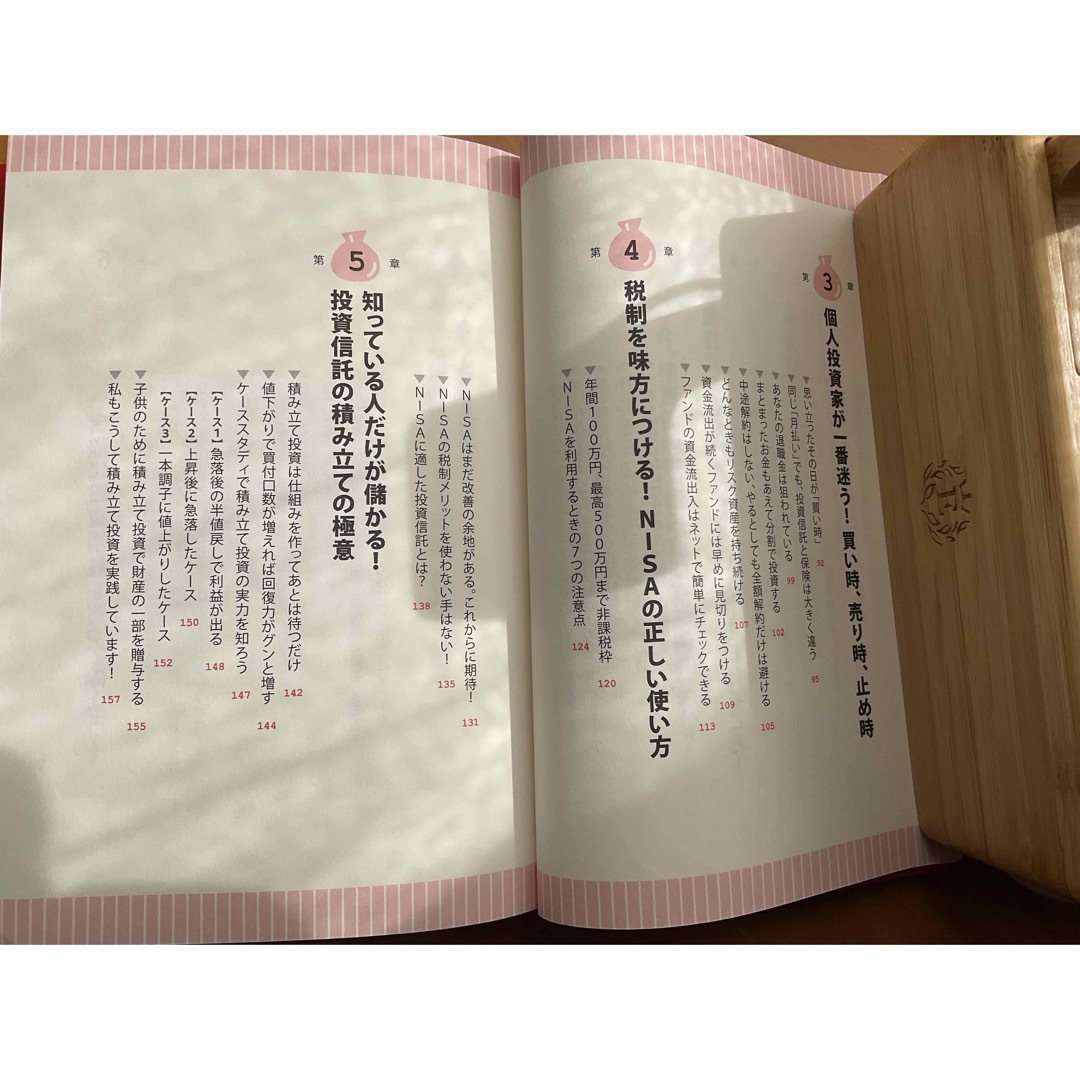 第3章
個人投資家が一番迷う! 買い時、売り時、止め時
▼思い立ったその日が「買い時」 92
▼同じ「月払い」でも、投資信託と保険は大きく違う 95
▼あなたの退職金は狙われている 99
▼まとまったお金もあえて分割で投資する 102
▼中途解約はしない、やるとしても全額解約だけは避ける 105
▼どんなときもリスク資産を持ち続ける 107
▼資金流出が続くファンドには早めに見切りをつける 109
▼ファンドの資金流出入はネットで簡単にチェックできる 113
第4章
税制を味方につける! NISAの正しい使い方
▼年間100万円、最高500万円まで非課税枠 120
▼NISAを利用するときの7つの注意点 124
▼NISAはまだ改善の余地がある。これからに期待! 131
▼NISAの税制メリットを使わない手はない! 135
▼NISAに適した投資信託とは? 138
第5章
知っている人だけが儲かる!
投資信託の積み立ての極意
▼積み立て投資は仕組みを作ってあとは待つだけ 142
▼値下がりで買付口数が増えれば回復力がグンと増す 144
▼ケーススタディで積み立て投資の実力を知ろう 147
【ケース1】急落後の半値戻しで利益が出る 148
【ケース2】上昇後に急落したケース 150
【ケース3】一本調子に値上がりしたケース 152
▼子供のために積み立て投資で財産の一部を贈与する 155
▼私もこうして積み立て投資を実践しています! 157